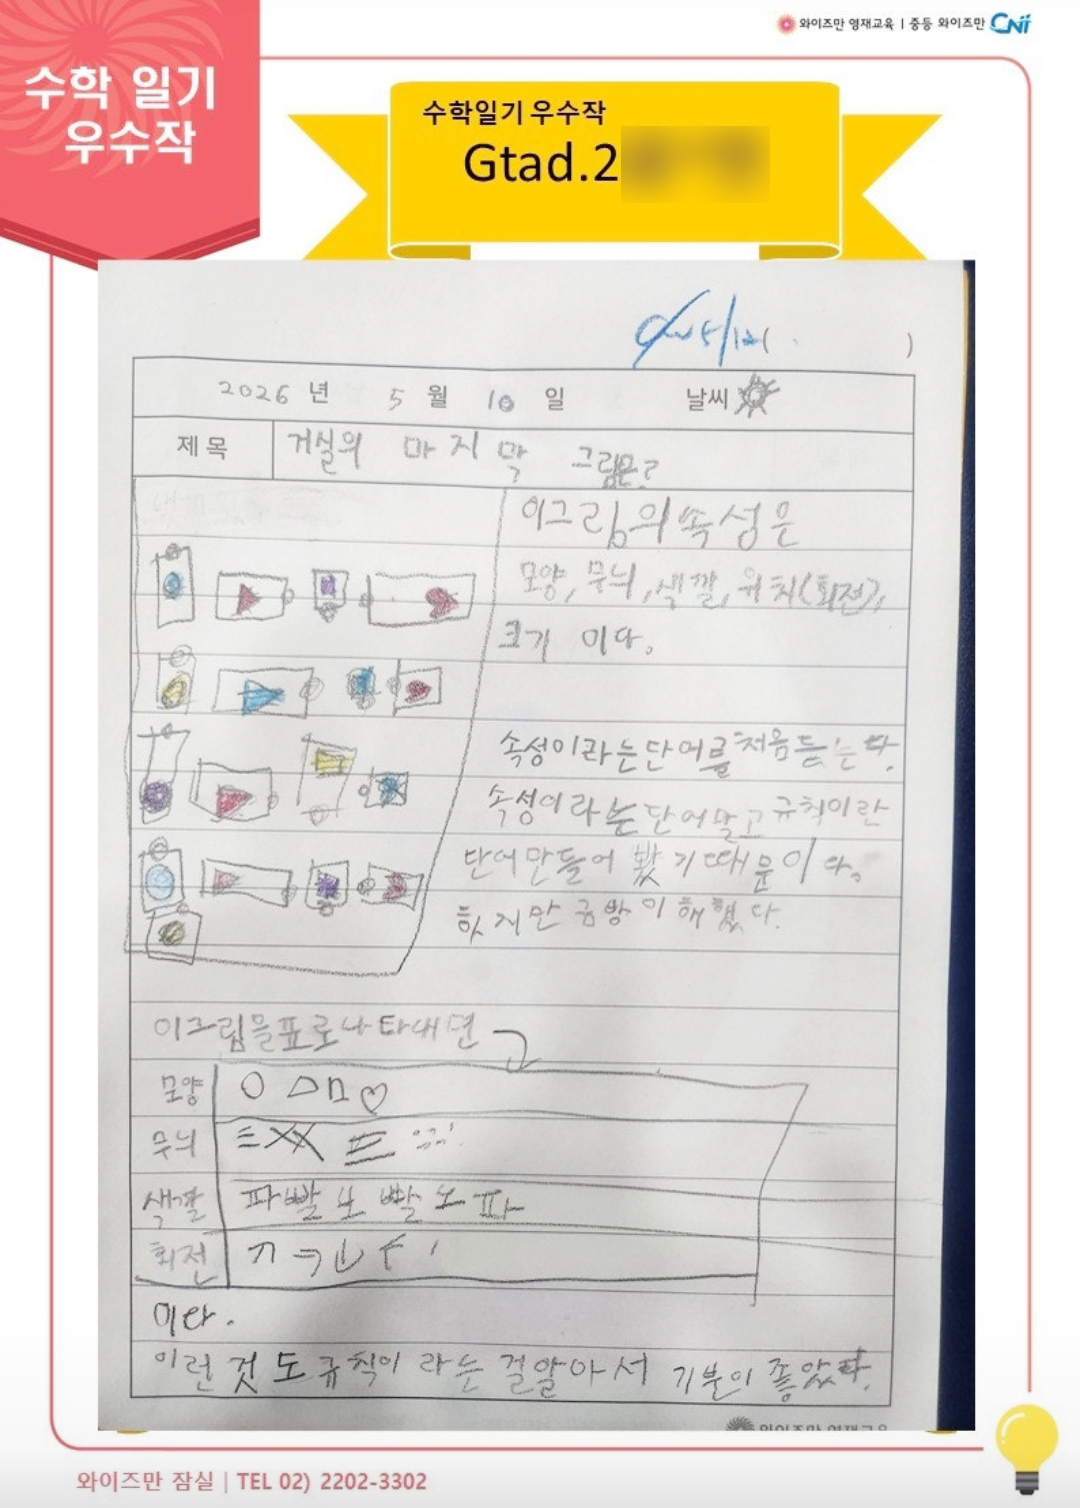 와이즈만 영재교육 | 중등 와이즈만 CNI
수학 일기
우수작
수학일기 우수작
Gtad.2
5/12( )
2026 년 5 월 10 일 날씨
제목 거실의 마지막 그림은?
이그림의속성은
모양, 무늬, 색깔, 위치(회전),
크기 이다.
속성이라는단어를처음듣는다.
속성이라는단어말고규칙이란
단어만들어 봤기때문이다.
하지만금방이해했다.
이그림을표로나타내면
모양
무늬
색깔 파빨보빨노파
회전
이다.
이런것도규칙이 라는 걸알아서 기분이 좋았다.
와이즈만 영재교육
와이즈만 잠실 | TEL 02) 2202-3302